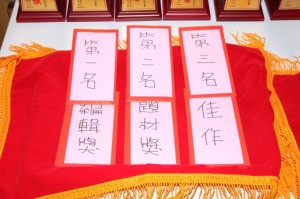 第一名
第二名
第三名
編輯獎
題材獎
佳作